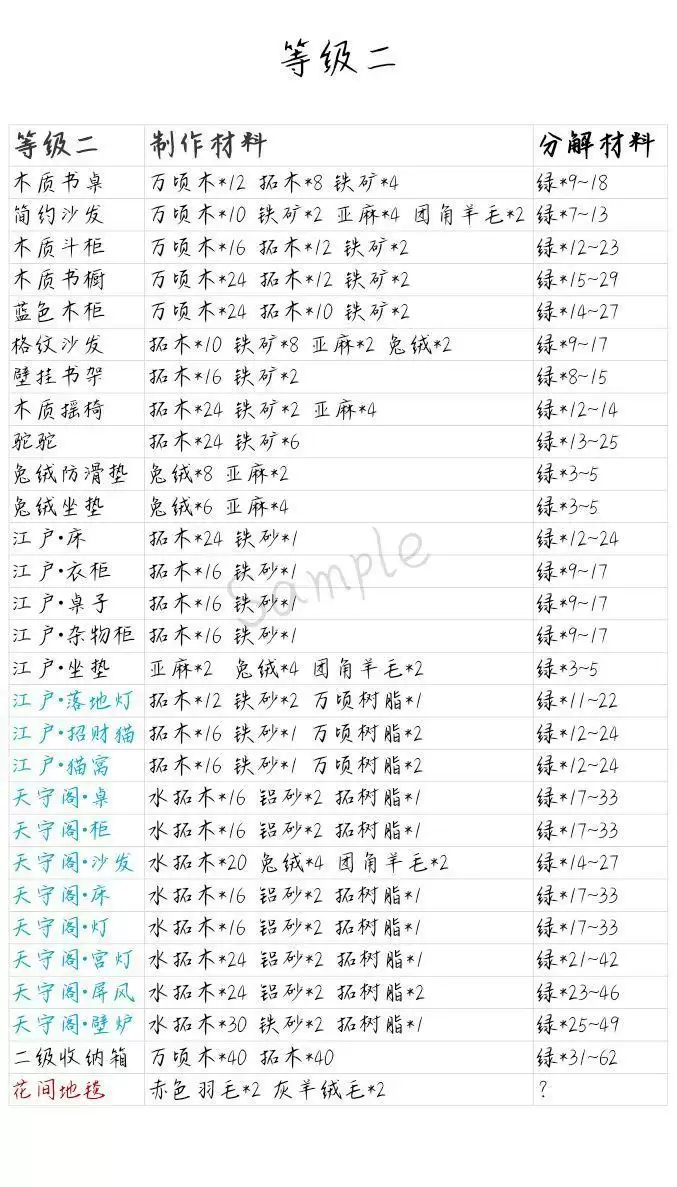 等级二
等级二 制作材料 分解材料
木质书桌 万顷木*12 拓木*8 铁矿*4 绿*9~18
简约沙发 万顷木*10 铁矿*2 亚麻*4 团角羊毛*2 绿*7~13
木质斗柜 万顷木*16 拓木*12 铁矿*2 绿*12~23
木质书橱 万顷木*24 拓木*12 铁矿*2 绿*15~29
蓝色木柜 万顷木*24 拓木*10 铁矿*2 绿*14~27
格纹沙发 拓木*10 铁矿*8 亚麻*2 兔绒*2 绿*9~17
壁挂书架 拓木*16 铁矿*2 绿*8~15
木质摇椅 拓木*24 铁矿*2 亚麻*4 绿*12~14
驼驼 拓木*24 铁矿*6 绿*13~25
兔绒防滑垫 兔绒*8 亚麻*2 绿*3~5
兔绒坐垫 兔绒*6 亚麻*4 绿*3~5
江户·床 拓木*24 铁砂*1 绿*12~24
江户·衣柜 拓木*16 铁砂*1 绿*9~17
江户·桌子 拓木*16 铁砂*1 绿*9~17
江户·杂物柜 拓木*16 铁砂*1 绿*9~17
江户·坐垫 亚麻*2 兔绒*4 团角羊毛*2 绿*3~5
江户·落地灯 拓木*12 铁砂*2 万顷树脂*1 绿*11~22
江户·招财猫 拓木*16 铁砂*1 万顷树脂*2 绿*12~24
江户·猫窝 拓木*16 铁砂*1 万顷树脂*2 绿*12~24
天守阁·桌 水拓木*16 铝砂*2 拓树脂*1 绿*17~33
天守阁·柜 水拓木*16 铝砂*2 拓树脂*1 绿*17~33
天守阁·沙发 水拓木*20 兔绒*4 团角羊毛*2 绿*14~27
天守阁·床 水拓木*16 铝砂*2 拓树脂*1 绿*17~33
天守阁·灯 水拓木*16 铝砂*2 拓树脂*1 绿*17~33
天守阁·宫灯 水拓木*24 铝砂*2 拓树脂*1 绿*21~42
天守阁·屏风 水拓木*24 铝砂*2 拓树脂*2 绿*23~46
天守阁·壁炉 水拓木*30 铁砂*2 拓树脂*1 绿*25~49
二级收纳箱 万顷木*40 拓木*40 绿*31~62
花间地毯 赤色羽毛*2 灰羊绒毛*2 ?
Sample